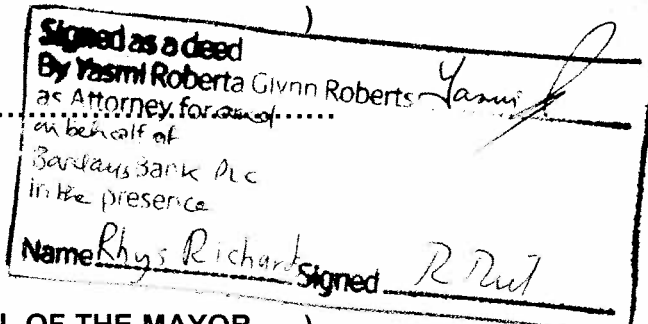 )
Signed as a deed
By Yasmi Roberta Glynn Roberts Yasmi
as Attorney for and
on behalf of
Barclays Bank PLC
in the presence
Name Rhys Richard Signed R
L OF THE MAYOR )